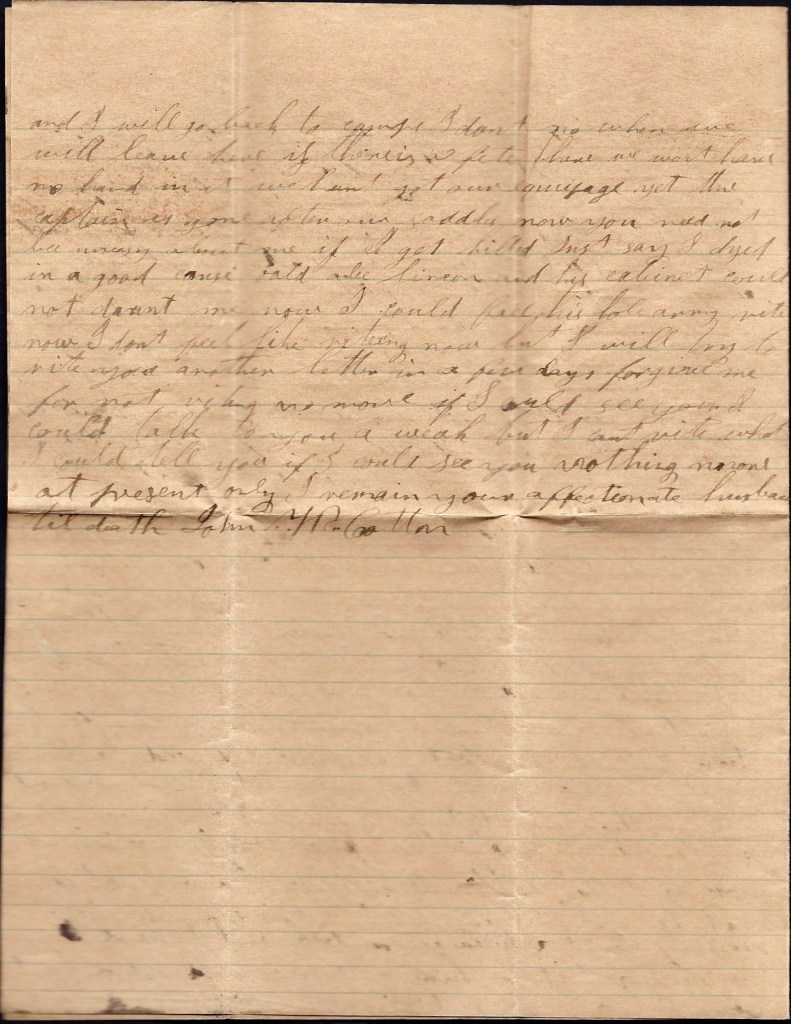 and I will go back to camps I dont no when we
will leave here if theire is a fite here we wont have
no hand in it we haint got our equipage yet the
captain is gone after our saddles now you need not
bee uneasy about me if I get killed Just say I dyed
in a good cause ould abe lincon and his cabinet could
not daunt me now I could face his hole army
now I dont feel like riting now but I will try to
rite you another letter in a few days forgive me
for not riting no more if I could see you I
could talk to you a weak but I cant rite what
I could tell you if I could see you nothing more
at present only I remain your affectionate husban
til death John Cotton